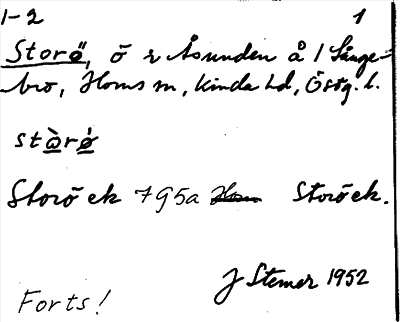 1-2 1
Storö, ö i Åsunden å 1 Långe-
bro, Horns sn, Kinda hd, Östg. l.
stàrø̀
Storö ek 795a Horn Storö ek.
J Stemer 1952
Forts!